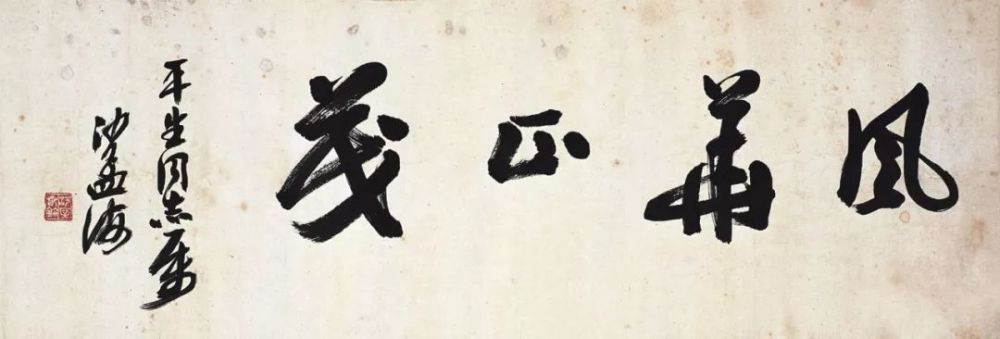 風華正茂
平生同志屬
沙孟海